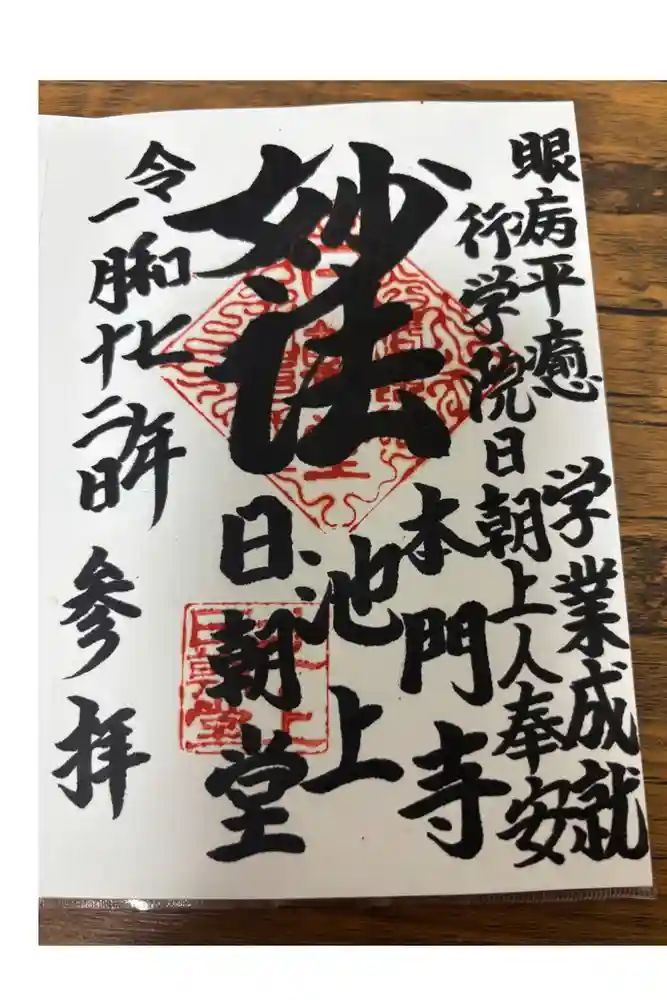 眼病平癒 学業成就
行学院日朝上人奉安
妙法
本門寺
池上
日朝堂
令和七年
一月十二日 参拝